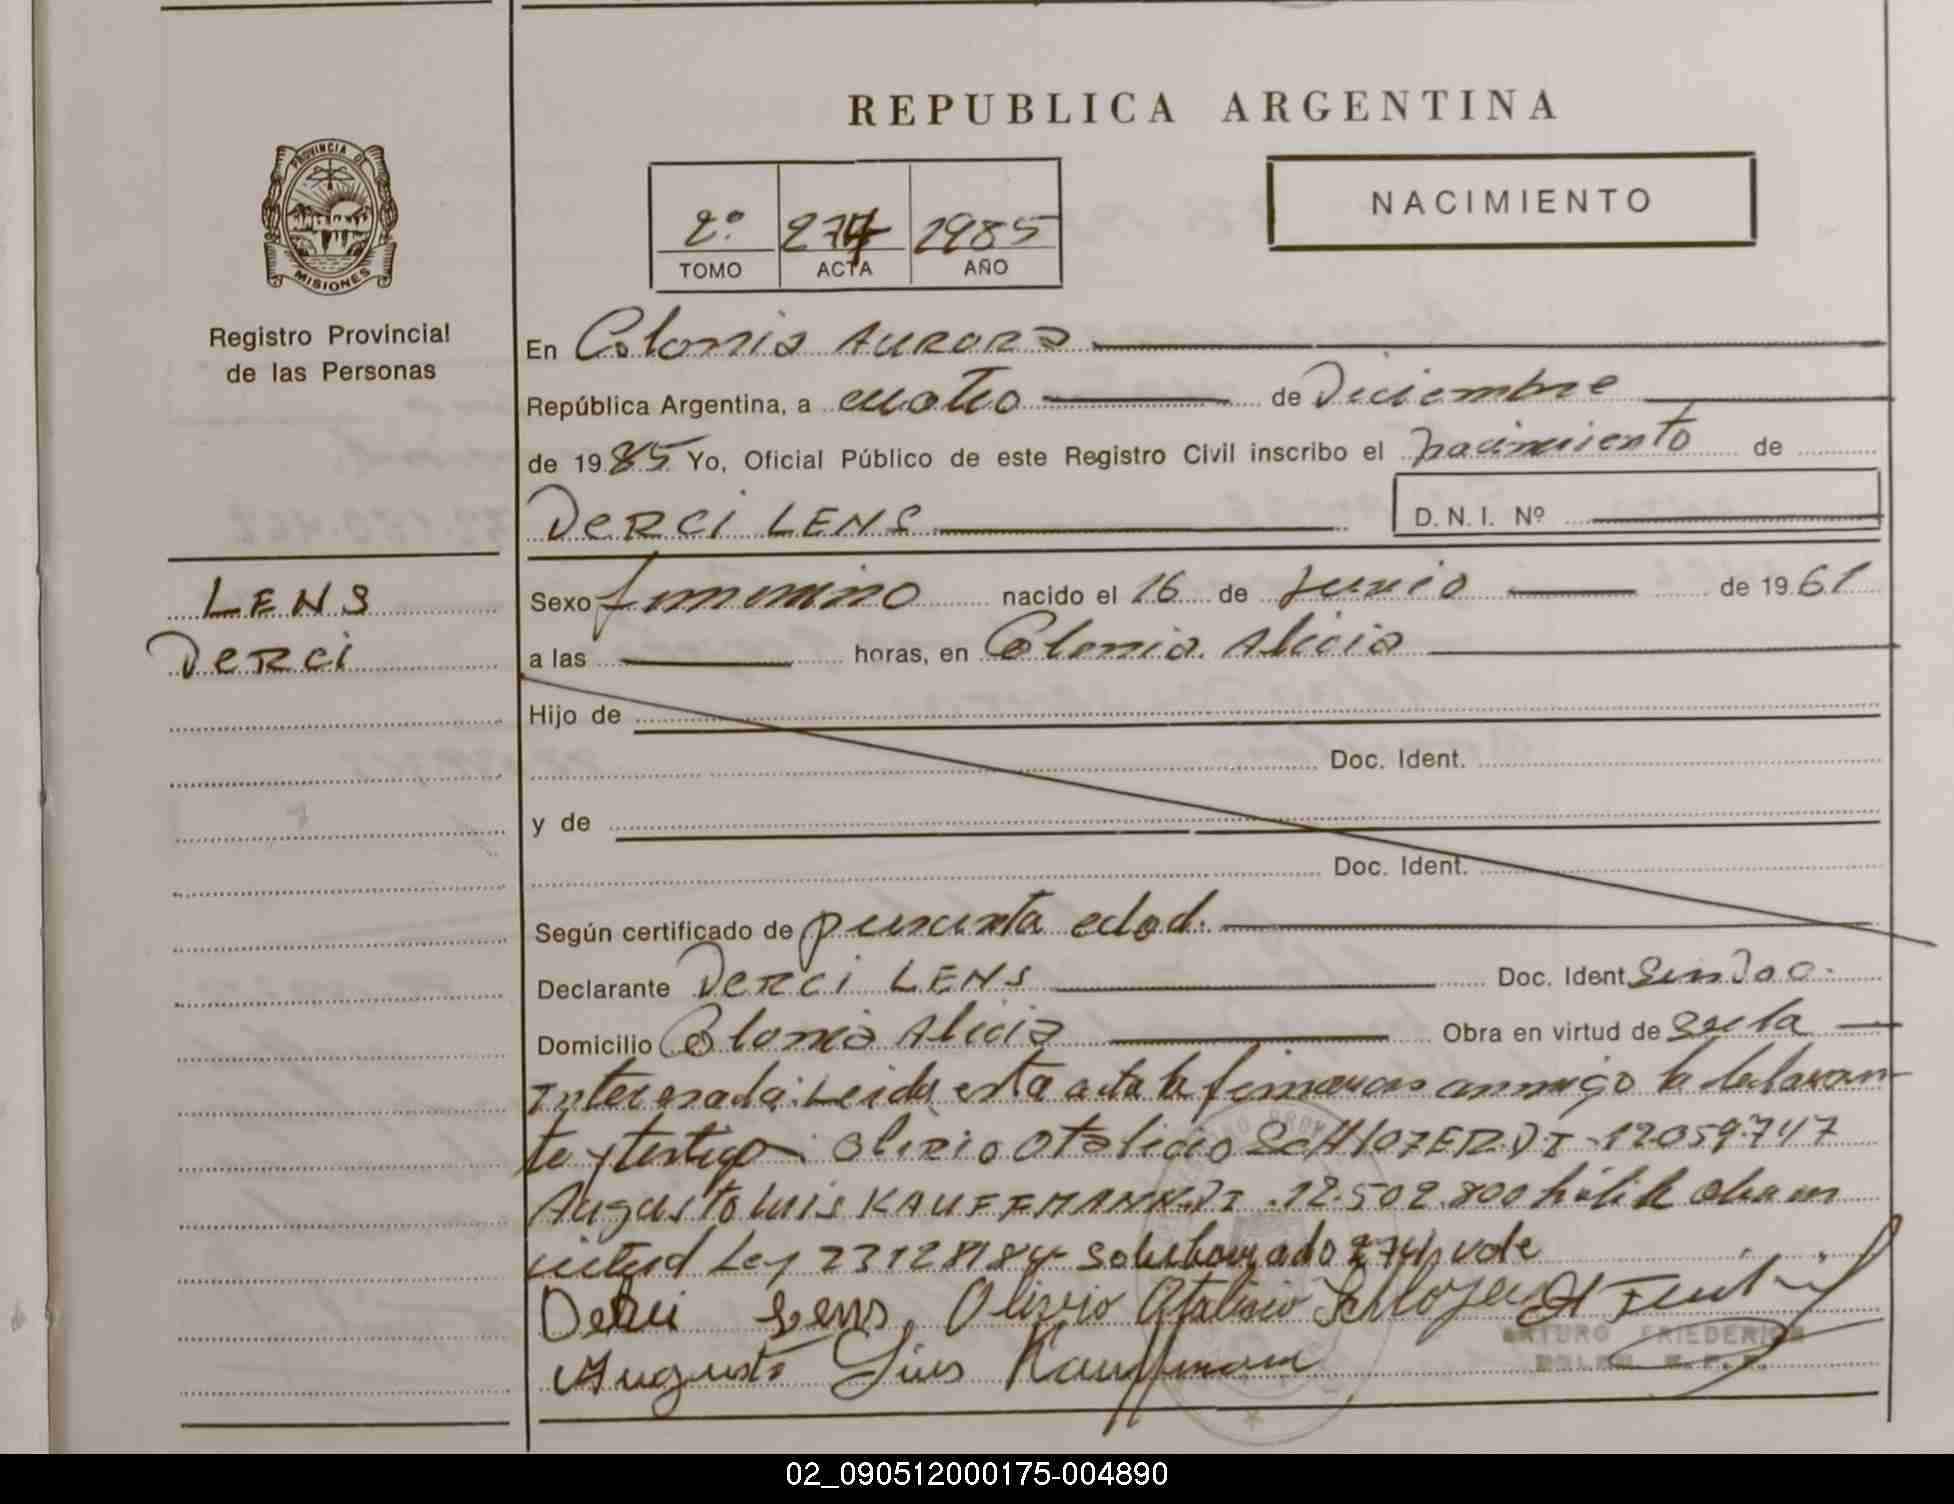 REPUBLICA ARGENTINA
PROVINCIA DE
MISIONES
Registro Provincial
de las Personas
2º 274 1985
TOMO ACTA AÑO
NACIMIENTO
En Colonia Aurora
República Argentina, a cuatro de Diciembre
de 1985 Yo, Oficial Público de este Registro Civil inscribo el nacimiento de
DERCI LENS D. N. I. Nº
LENS
Derci
Sexo femenino nacido el 16 de Junio de 1961
a las horas, en Colonia Alicia
Hijo de
Doc. Ident.
y de
Doc. Ident.
Según certificado de presunta edad.
Declarante Derci LENS Doc. Ident. Sin Doc.
Domicilio Colonia Alicia Obra en virtud de ser la
Interesada. Leida esta acta la firmaron conmigo la declaran-
te y testigo Olirio Otalicio SCHLOZER D.I. 12.059.747
Augusto Luis KAUFFMANN D.I. 12.502.800 Obra en
virtud Ley 23128/84 Sobrborrado 274 vale
Derci Lens Olirio Otalicio Schlozer
Augusto Luis Kauffmann
ARTURO FRIEDERICH
02_090512000175-004890